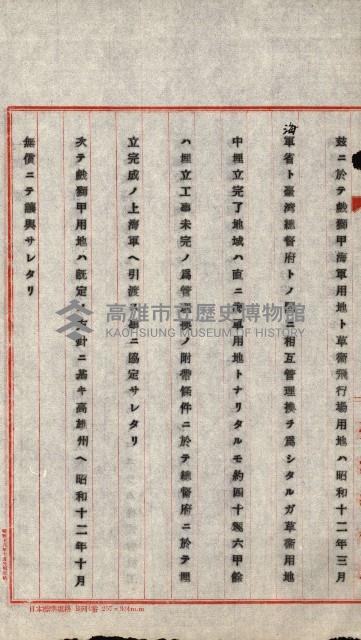 茲ニ於テ戯獅甲海軍用地ト草衙飛行場用地ハ昭和十二年三月
海軍省ト臺灣總督府トノ間ニ相互管理換ヲ爲シタルガ草衙用地
中埋立完了地域ハ直ニ海軍用地トナリタルモ約四十四六甲餘
ハ埋立工事未完ノ爲管理換ノ附帶條件ニ於テ總督府ニ於テ埋
立完成ノ上海軍ヘ引渡ニ協定サレタリ
次テ戯獅甲用地ハ既定ノ方針ニ基キ高雄州ヘ昭和十二年十月
無償ニテ讓與サレタリ
高雄市立歷史博物館
KAOHSIUNG MUSEUM OF HISTORY
日本標準規格 B列4番 257×364m.m